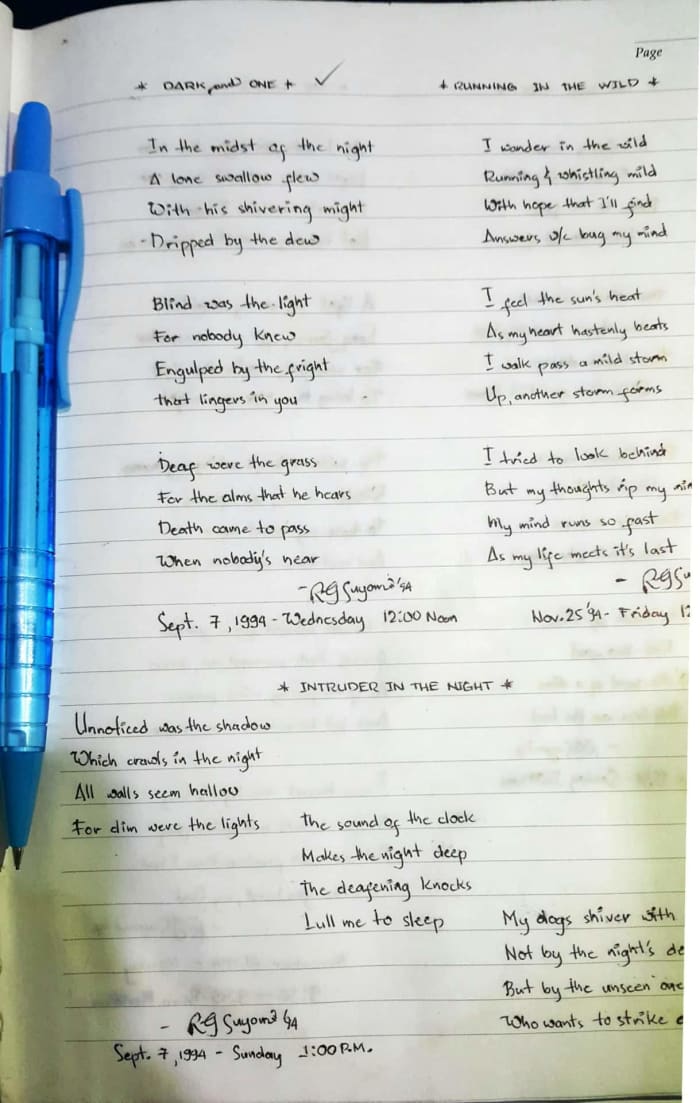 Page
* DARK and ONE *
In the midst of the night
A lone swallow flew
With his shivering might
Dripped by the dew
Blind was the light
For nobody knew
Engulped by the fright
that lingers in you
Deaf were the grass
For the alms that he hears
Death came to pass
When nobody's near
- RG Suyom '94
Sept. 7, 1994 - Wednesday 12:00 Noon
* RUNNING IN THE WILD *
I wonder in the wild
Running & whistling mild
With hope that I'll find
Answers w/c bug my mind
I feel the sun's heat
As my heart hastenly beats
I walk pass a mild storm
Up, another storm forms
I tried to look behind
But my thoughts rip my
My mind runs so fast
As my life meets it's last
- RG Su
Nov. 25 '94 - Friday 12
* INTRUDER IN THE NIGHT *
Unnoticed was the shadow
Which crawls in the night
All walls seem hallow
For dim were the lights
the sound of the clock
Makes the night deep
the deafening knocks
Lull me to sleep
My dogs shiver with
Not by the night's de
But by the unseen one
Who wants to strike
- RG Suyom '94
Sept. 7, 1994 - Sunday 1:00 P.M.